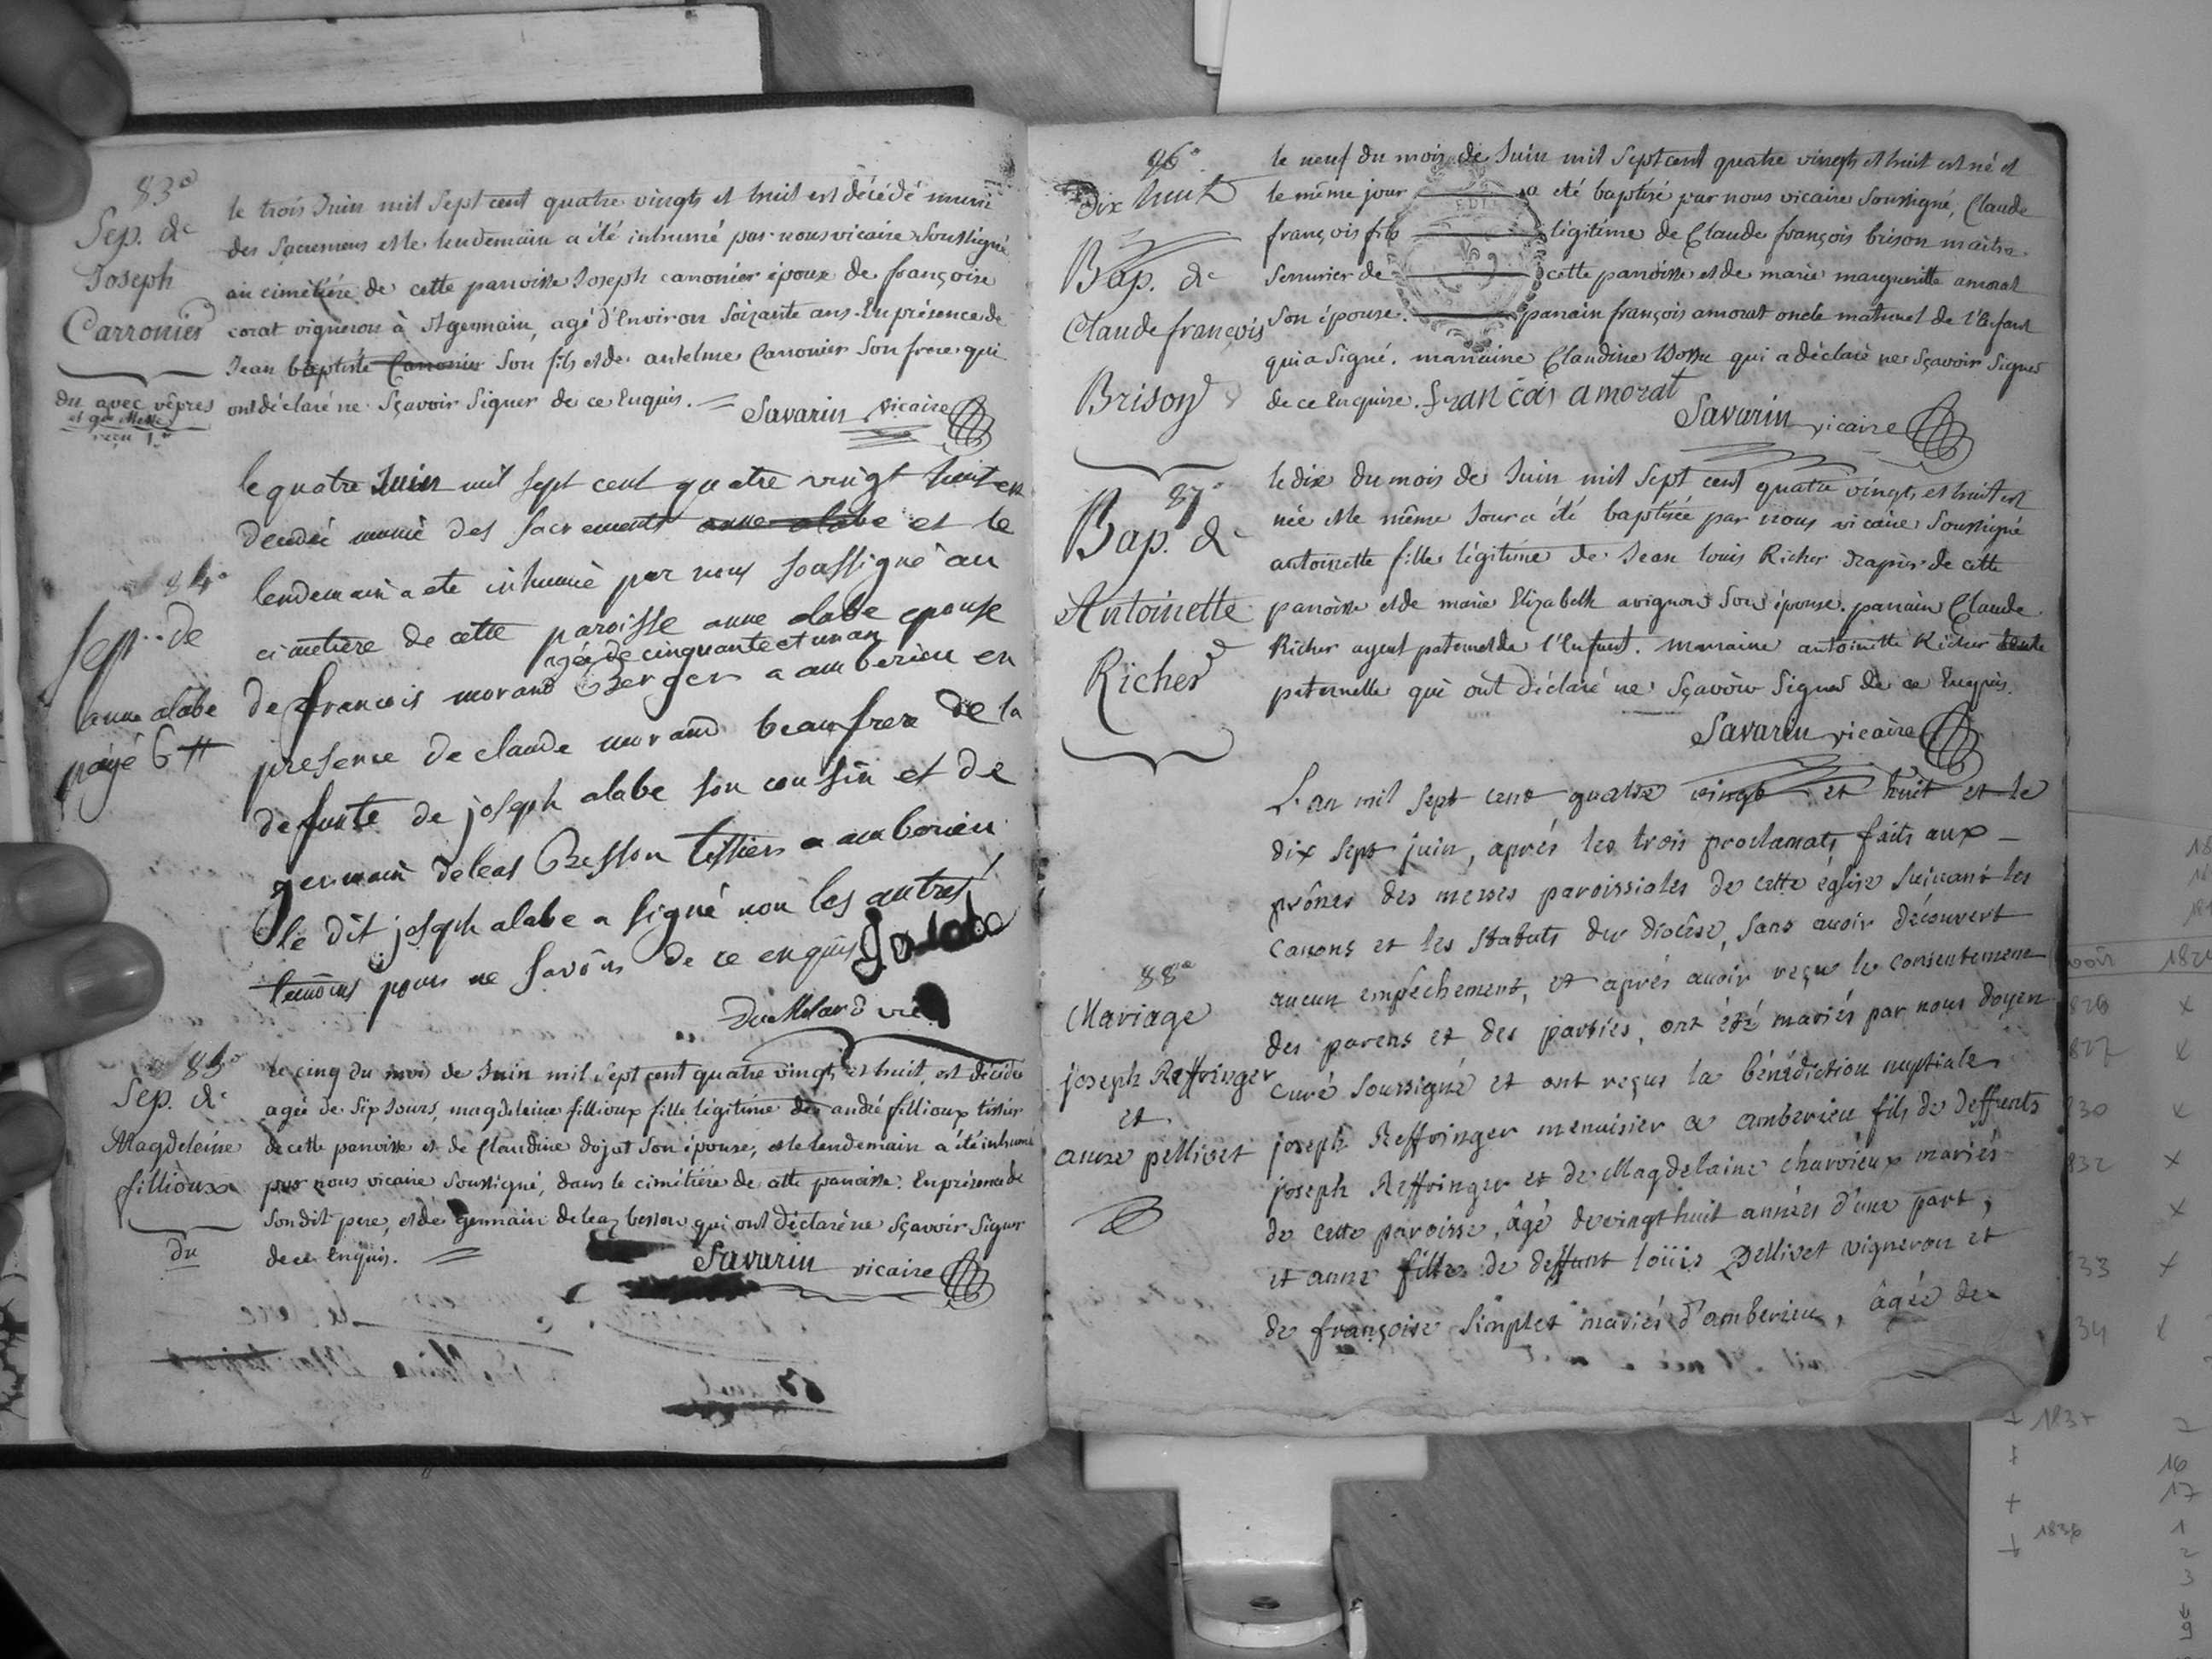 83°
Sep. de
Joseph
Carronier
du avec vêpres
et gde Messe
reçu
le trois Juin mil sept cent quatre vingts et huit est décédé muni
des Sacremens et le lendemain a été inhumé par nous vicaire soussigné
au cimétiére de cette parroisse Joseph carronier époux de françoise
corat vigneron à St germain, agé d'environ soixante ans. En présence de
Jean baptiste Carronier son fils et de antelme Carronier son frere qui
ont déclaré ne sçavoir signer de ce Enquis.
Savarin vicaire
84°
Sep. de
anne alabe
payé 6 tt
le quatre Juin mil sept cent quatre vingt huit est
decedé munie des sacrements anne alabe et le
lendemain a ete inhumé par nous soussigné au
cimetiere de cette paroisse anne alabe epouse
agée de cinquante et un an
de francois morand Berger a amberieu en
presence de claude morand beaufrere de la
defunte de joseph alabe son cousin et de
germain deleas Besson tissier a amberieu
le dit joseph alabe a signé non les autres
temoins pour ne savoir de ce enquis
85°
Sep. de
Magdeleine
fillioux
du
le cinq du mois de Juin mil sept cent quatre vingts et huit est décédée
agée de six Jours, magdeleine fillioux fille légitime de andré fillioux tissier
de cette parroisse et de Claudine dojat son épouse, et le lendemain a été inhumé
par nous vicaire soussigné, dans le cimétiére de cette parroisse. En présence de
son dit pere, et de germain deleaz besson qui ont déclaré ne sçavoir signer
de ce Enquis.
Savarin vicaire
86°
Dix huit
Bap. de
Claude françois
Brison
le neuf du mois de Juin mil sept cent quatre vingts et huit est né et
le même jour a eté baptisé par nous vicaire soussigné, Claude
françois fils légitime de Claude françois brison maitre
serrurier de cette parroisse et de marie margueritte amorat
son épouse. parrain françois amorat oncle maternel de l'Enfant
qui a signé. marraine Claudine qui a déclaré ne sçavoir signer
de ce Enquise. françois amorat
Savarin vicaire
87°
Bap. de
Antoinette
Richer
le dix du mois de Juin mil sept cent quatre vingts et huit est
née et le même Jour a été baptisée par nous vicaire soussigné
antoinette fille légitime de Jean louis Richer drapier de cette
parroisse et de marie Elizabeth avignon son épouse. parrain Claude
Richer ayeul paternel de l'Enfant. marraine antoinette Richer tente
paternelle qui ont déclaré ne sçavoir signer de ce Enquis.
Savarin vicaire
88°
Mariage
joseph Reffringer
et
anne pellivet
L'an mil sept cent quatre vingt et huit et le
dix sept juin, aprés les trois proclamats faits aux
prônes des messes paroissiales de cette église suivant les
canons et les statuts du diocèse, sans avoir découvert
aucun empéchement, et aprés avoir reçu le consentement
des parens et des parties, ont été mariés par nous doyen
curé soussigné et ont reçus la bénédiction nuptiale
joseph Reffringer menuisier a amberieu fils de deffunts
joseph Reffringer et de Magdelaine charvieux mariés
de cette paroisse, âgé de vingt huit années d'une part,
et anne fille de deffunt loüis Pellivet vigneron et
de françoise simplet mariés d'amberieu, âgée de
voir
1837
16
17
1836
1
2
3